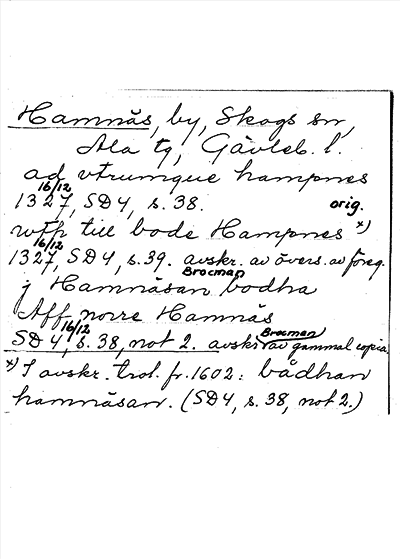 Hamnäs, by, Skogs sn,
Ala tg, Gävleb. l.
ad vtrumque hampnes
16/12
1327, SD 4, s. 38. orig.
wpp till bode Hampnes x)
16/12
1327, SD 4, s. 39. avskr. av övers. av föreg.
Brocman
j Hamnäsan bodha
Aff norre Hamnäs
16/12 Brocman
SD 4, s. 38, not 2. avskr. av gammal copia.
x) I avskr. trol. fr. 1602: bådhan
hamnäsan. (SD 4, s. 38, not 2.)